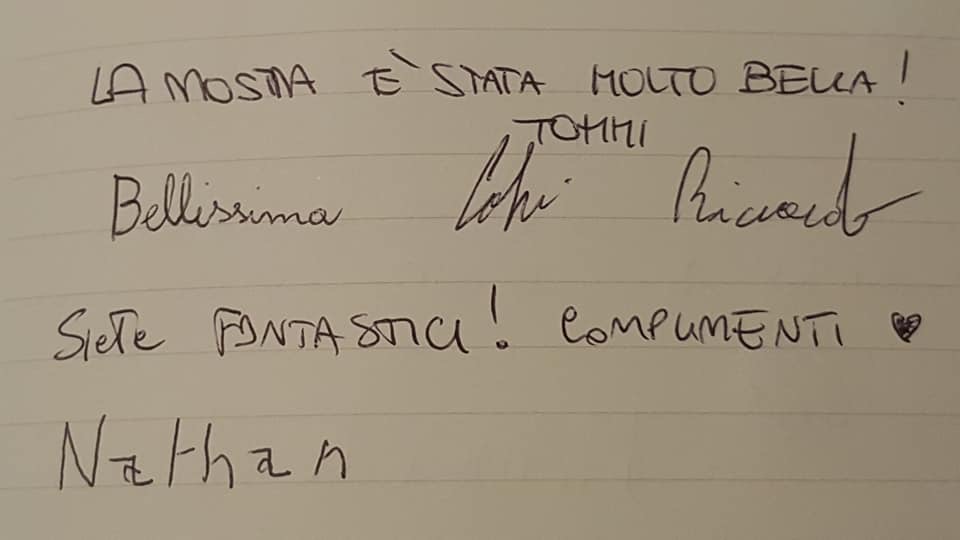 LA MOSTRA È STATA MOLTO BELLA!
TOMMI
Bellissima Riccardo
Siete FANTASTICI! COMPLIMENTI ♥
Nathan